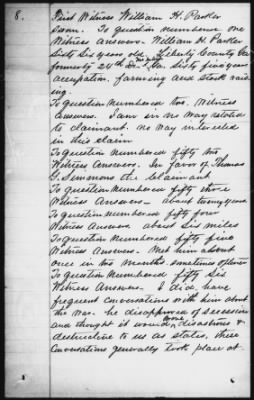 8.
First Witness William H. Parker
sworn. To question numbered one
Witness Answers. William H. Parker
sixty six years old. Liberty County Ga
formerly 24th sixty five years
occupation, farming and stock rais-
ing.
To question numbered two. Witness
Answers. I am in no way related
to claimant. no way interested
in his claim
To question numbered fifty two
Witness Answers. In favor of Thomas
G. Simmons the claimant
To question numbered fifty three
Witness Answers— about twenty years
To question numbered fifty four
Witness Answers about six miles
To question numbered fifty five
Witness Answers. Met him about
once in two months sometimes oftener
To question numbered fifty six
Witness Answers— I did, have
frequent conversations with him about
the War. he disapproved of secession
and thought it would prove disastrous &
destructive to us as states, these
conversations generally took place at